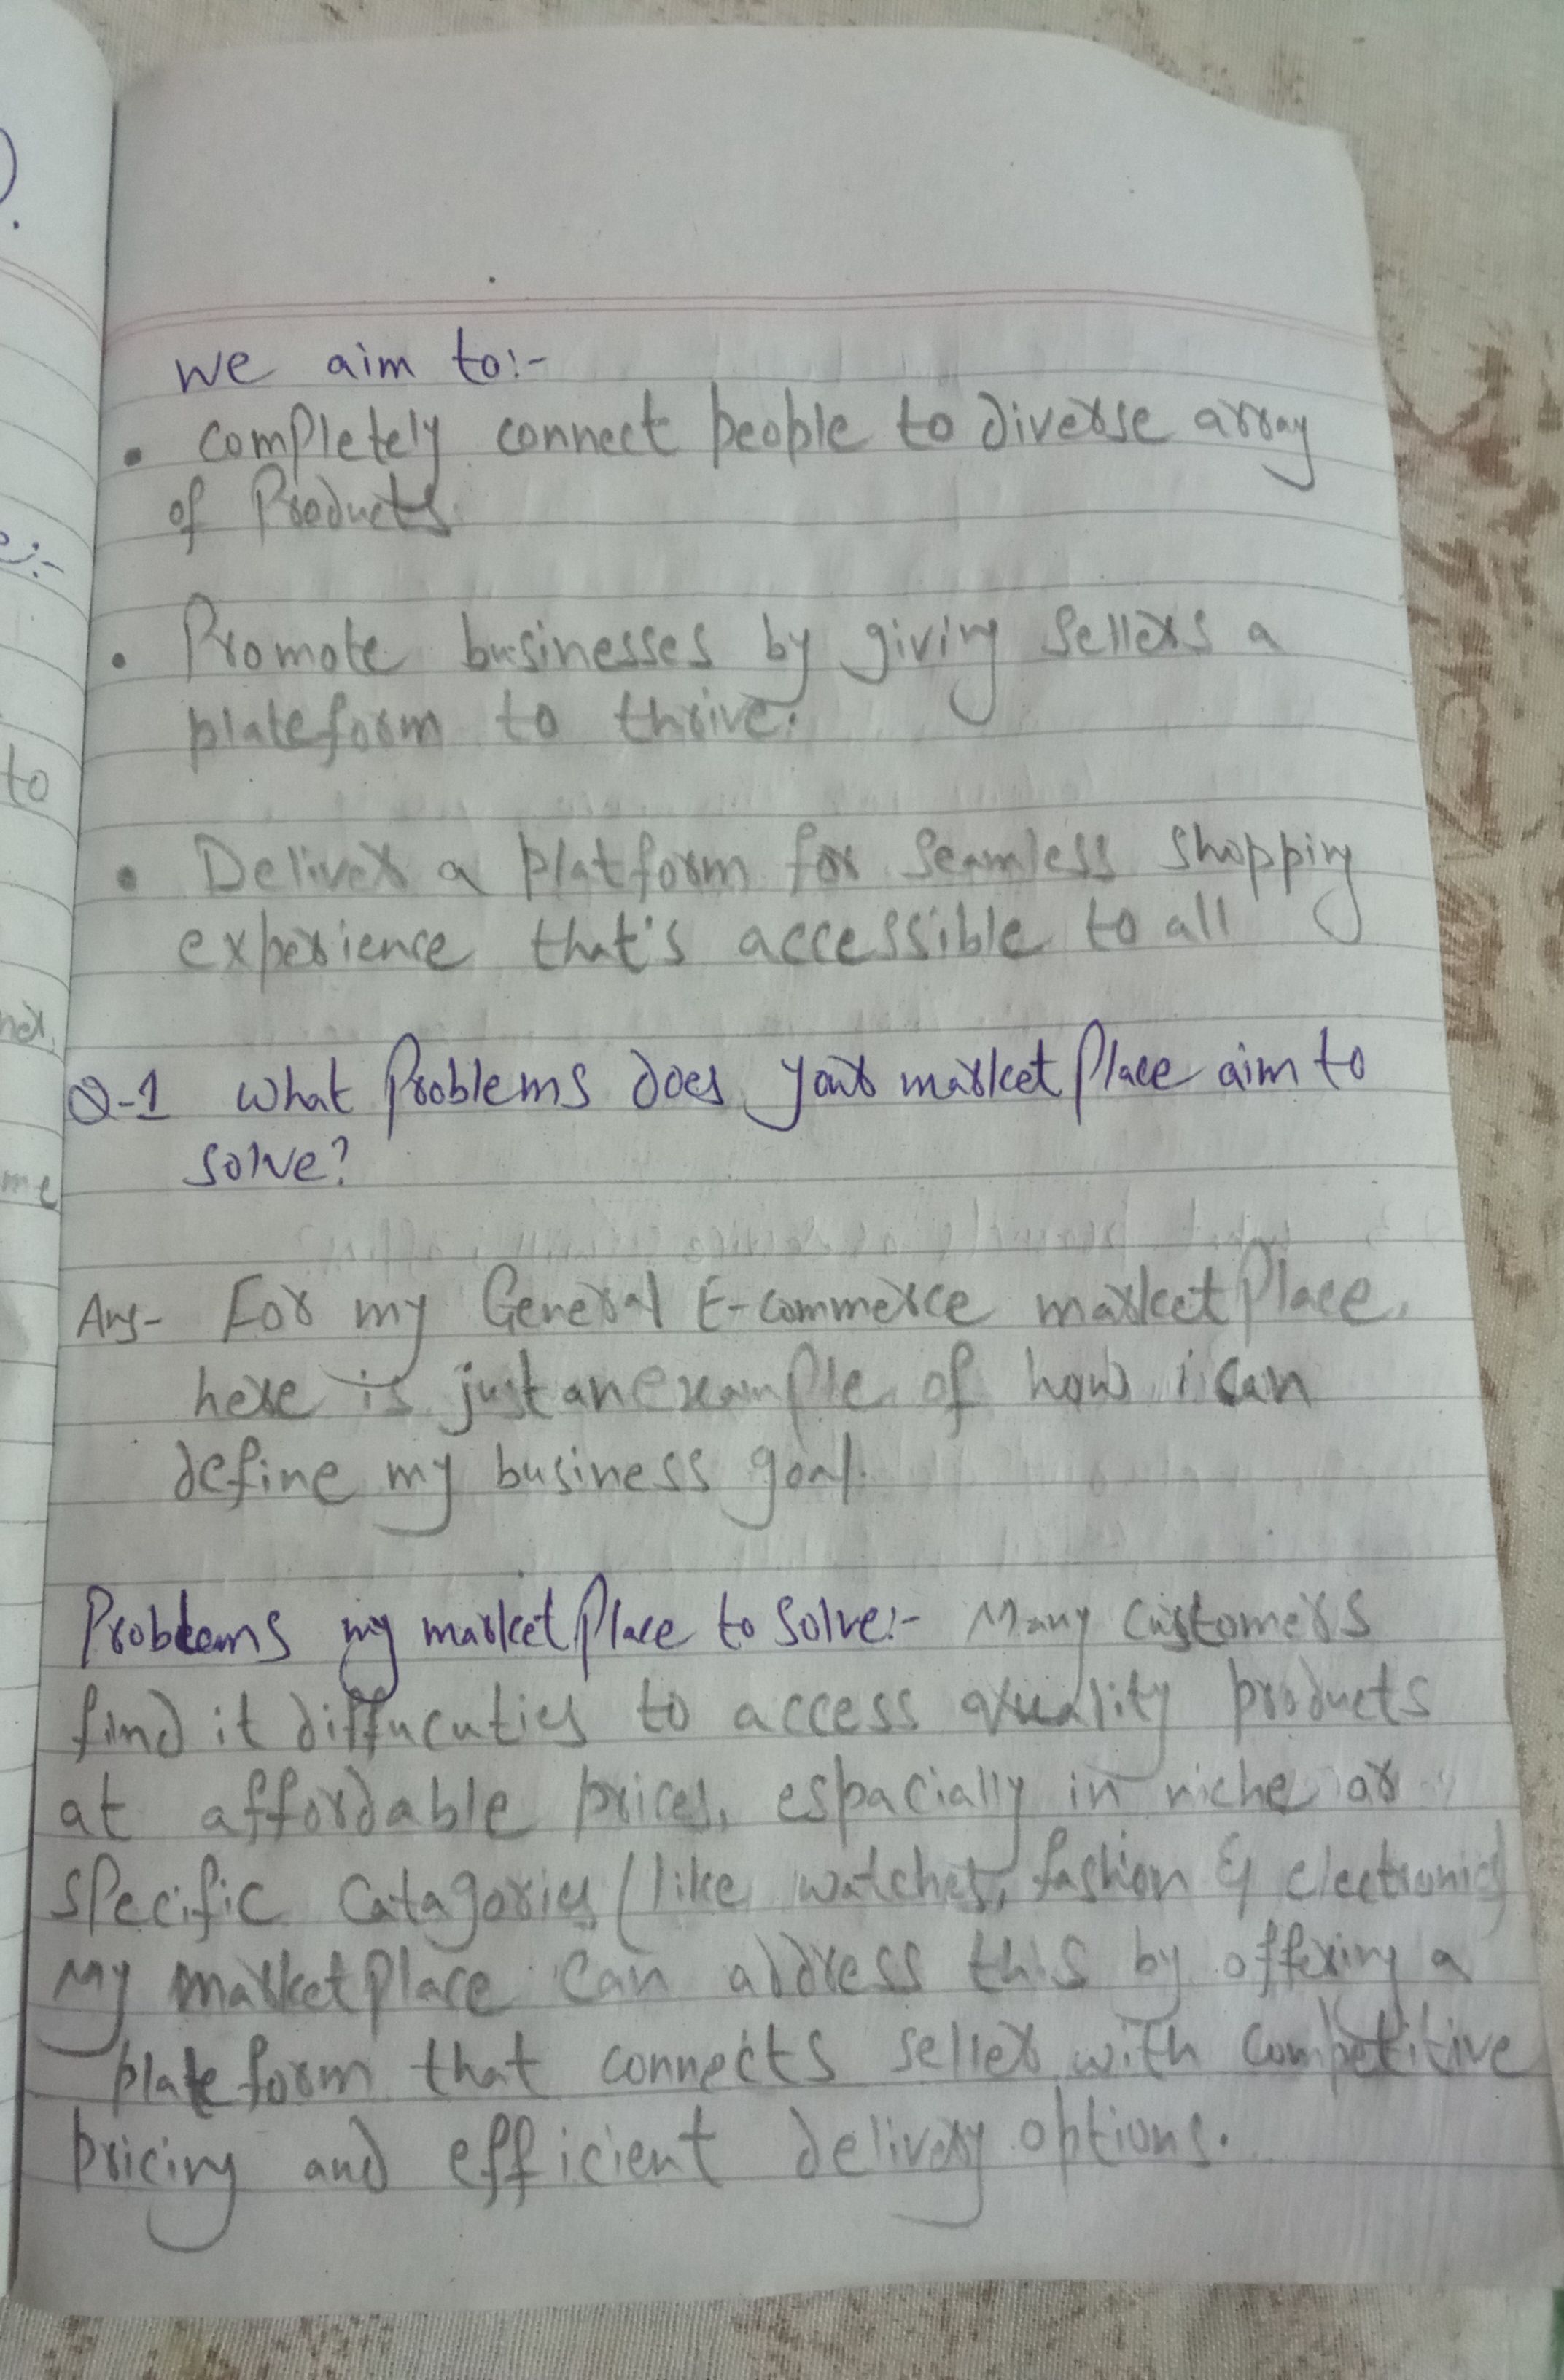 We aim to:-
• Completely connect people to diverse array
of Products.
• Promote businesses by giving sellers a
plateform to thrive.
• Deliver a platform for seamless shopping
experience that's accessible to all
Q-1 What Problems does your market Place aim to
solve?
Ans- For my General E-commerce market Place,
here is just an example of how i can
define my business goal.
Problems my market Place to solve:- Many customers
find it diffucuties to access quality products
at affordable prices, espacially in niche or
specific catagories (like watches, fashion & electronics)
My marketplace can address this by offering a
plateform that connects seller with competitive
pricing and efficient delivery options.
to
me